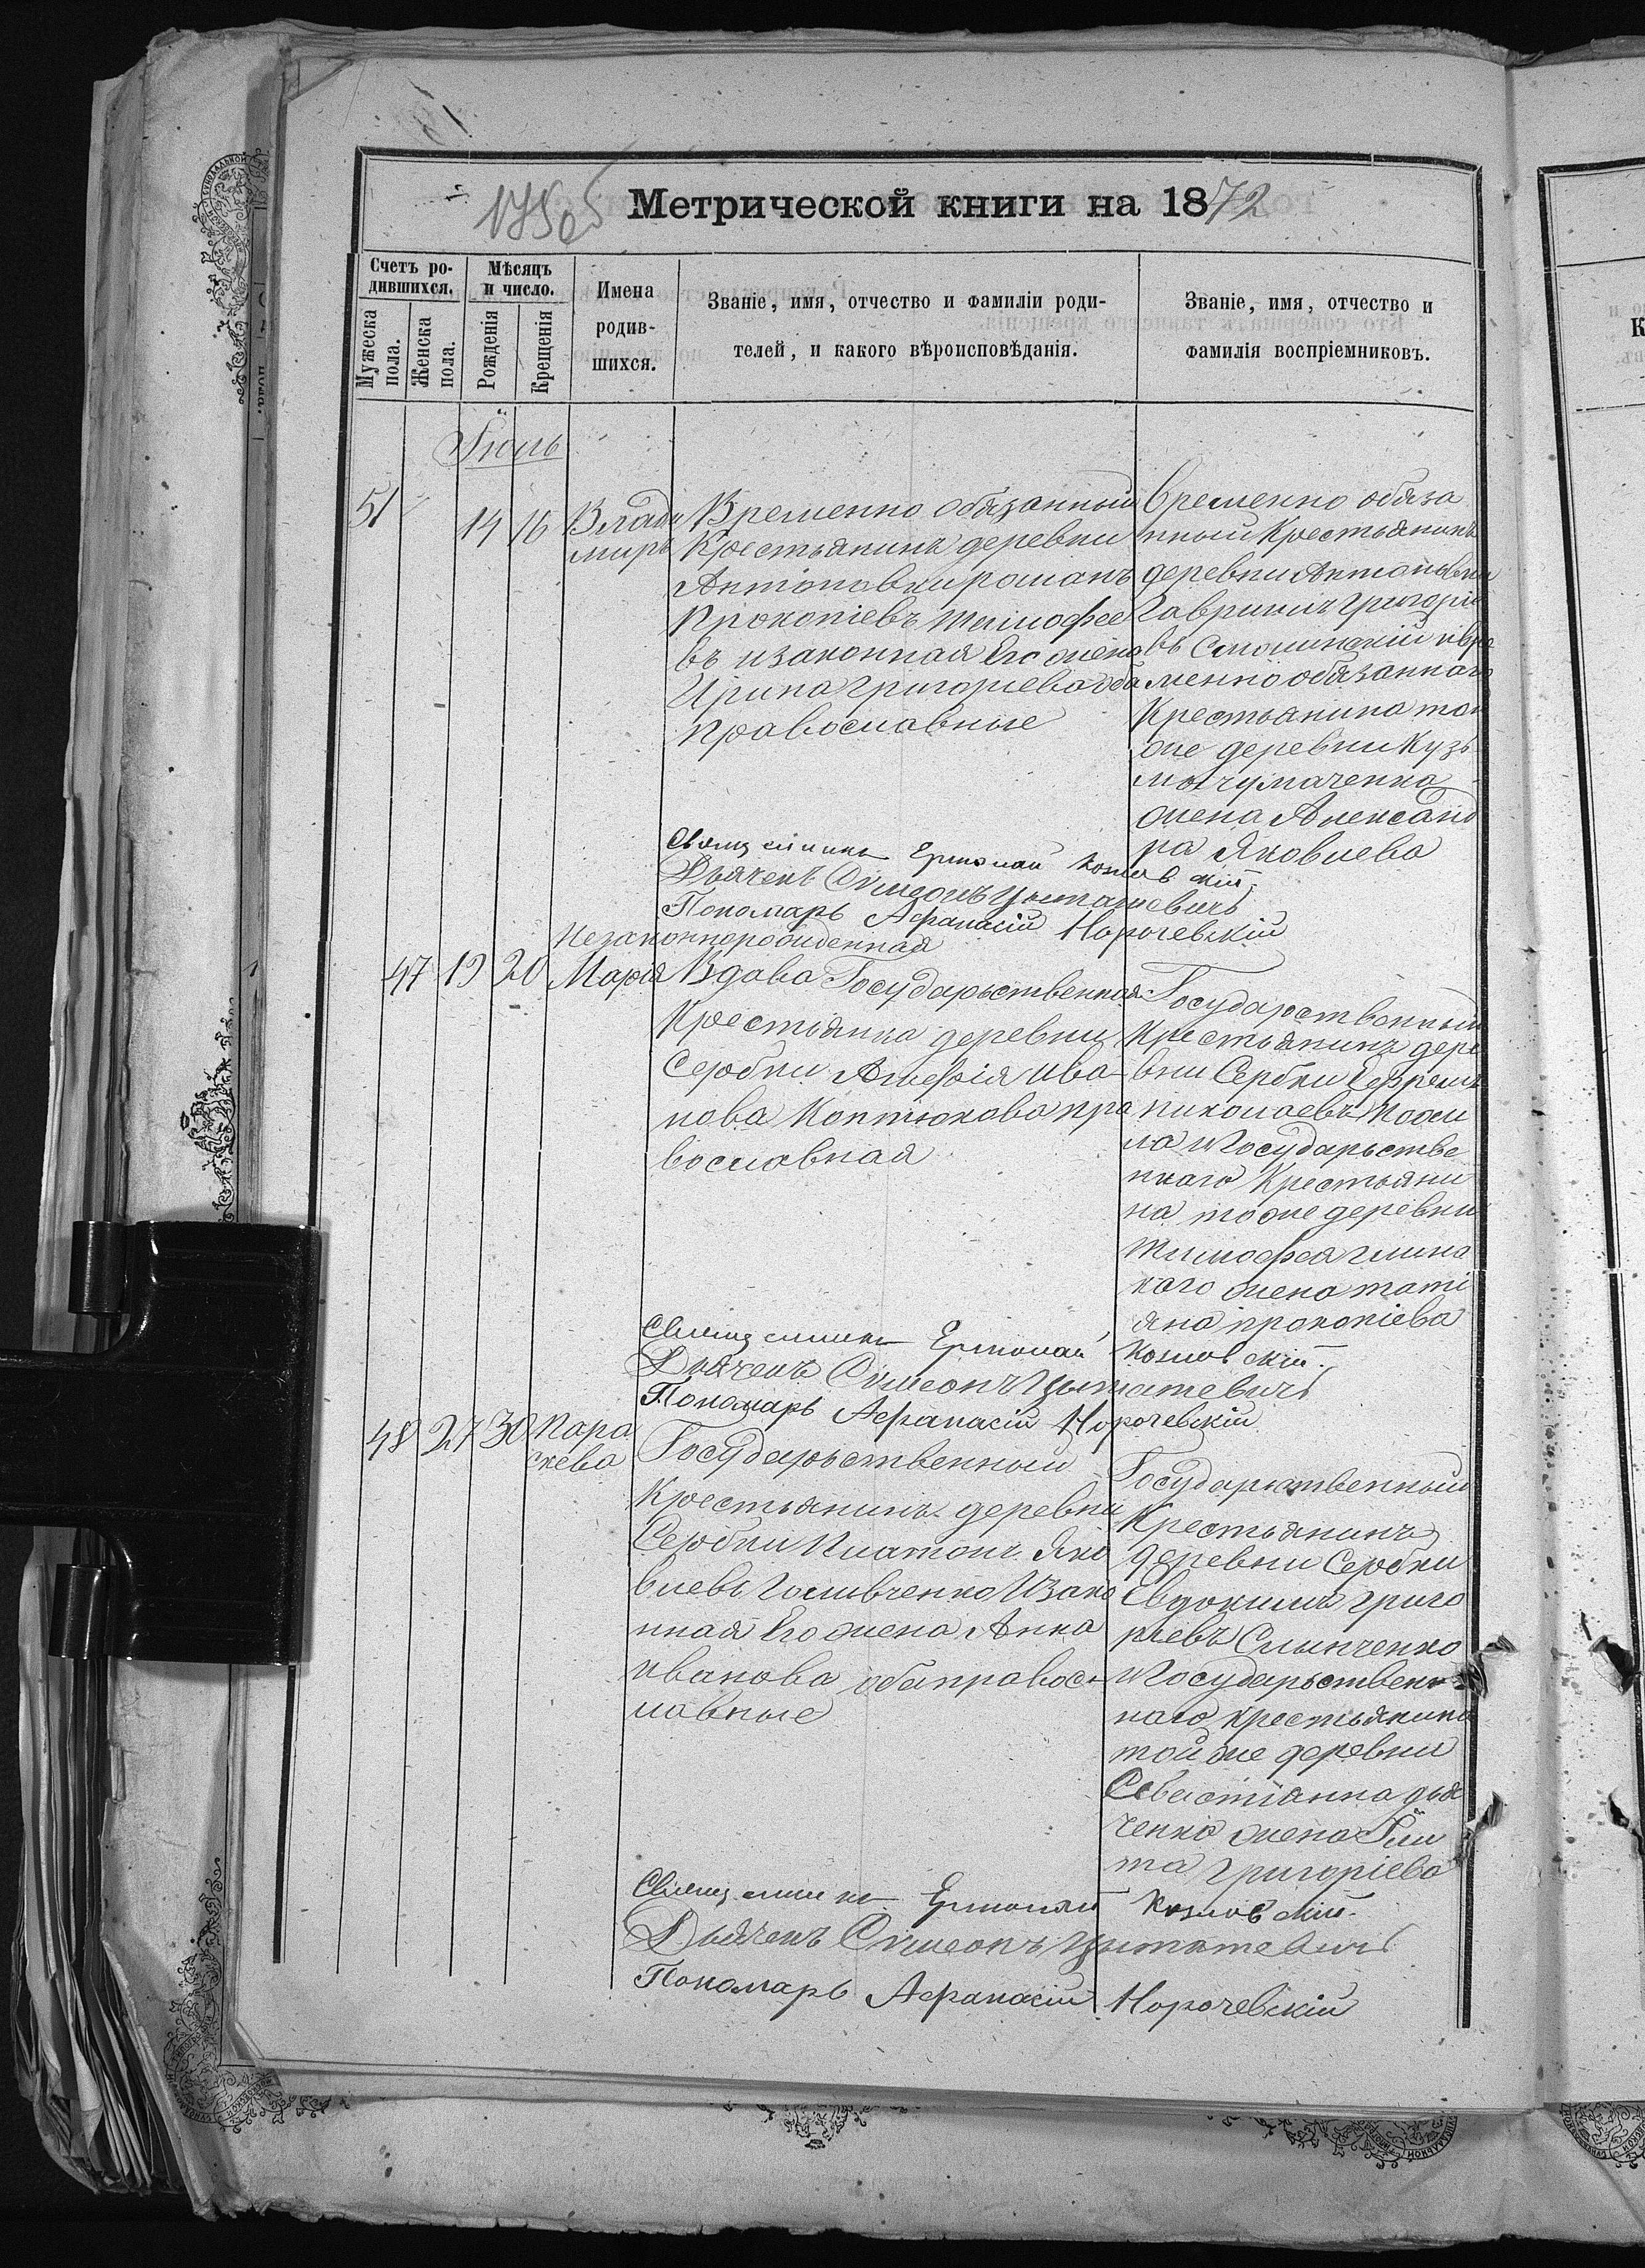 175об
Метрической книги на 1872
Счетъ ро-
дившихся.
Мужеска
пола.
Женска
пола.
Мѣсяцъ
и число.
Рожденія
Крещенія
Имена
родив-
шихся.
Званіе, имя, отчество и фамиліи роди-
телей, и какого вѣроисповѣданія.
Званіе, имя, отчество и
фамилія воспріемниковъ.
Іюль
51
14 16
Влади
миръ
Временно обязанный
Крестьянинъ деревни
Антоновки романъ
Прокопіевъ Тимофее
въ изаконная Его жена
Ирина Григорьева оба
православные
Временно обяза
нный Крестьянинъ
деревни Антоновки
Гавріилъ Григоріе
въ Смолинскій и вре
менно обязаннаго
Крестьянина той
же деревни Кузь
мы чумаченка
жена Александ
ра Яковлева
Священникъ Ермолай Козловскій
Дьячекъ Сѵмеонъ Цытатевичъ
Пономарь Афанасій Норочевскій
Незаконнорожденная
47 19 20 Марія
Вдова Государственная
Крестьянка деревни
Сербки Агафія Ива
нова Коптюкова пра
вославная
Государственный
Крестьянинъ дере
вни Сербки Ефремъ
Николаевъ
ла и Государстве
ннаго Крестьяни
на тоже деревни
Тимофея глинс
каго жена тати
яна прокопіева
Священникъ Ермолай Козловскій.
Дьячекъ Сѵмеонъ Цытатевичъ
Пономарь Афанасій Норочевскій
48 27 30 Пара
скева
Государьственный
Крестьянинъ деревни
Сербки Платонъ Яко
влевъ Голивченко Изако
нная Его жена Анна
иванова оба правос
лавные
Государственный
Крестьянинъ
деревни Сербки
Евдокимъ Григо
рьевъ Слынченко
и Государьствен
наго крестьянина
той же деревни
Севастіанна дья
ченка жена Гли
та Григоріева
Священникъ Ермолай Козловскій.
Дьячекъ Сѵмеонъ Цытатевичъ
Пономарь Афанасій Норочевскій